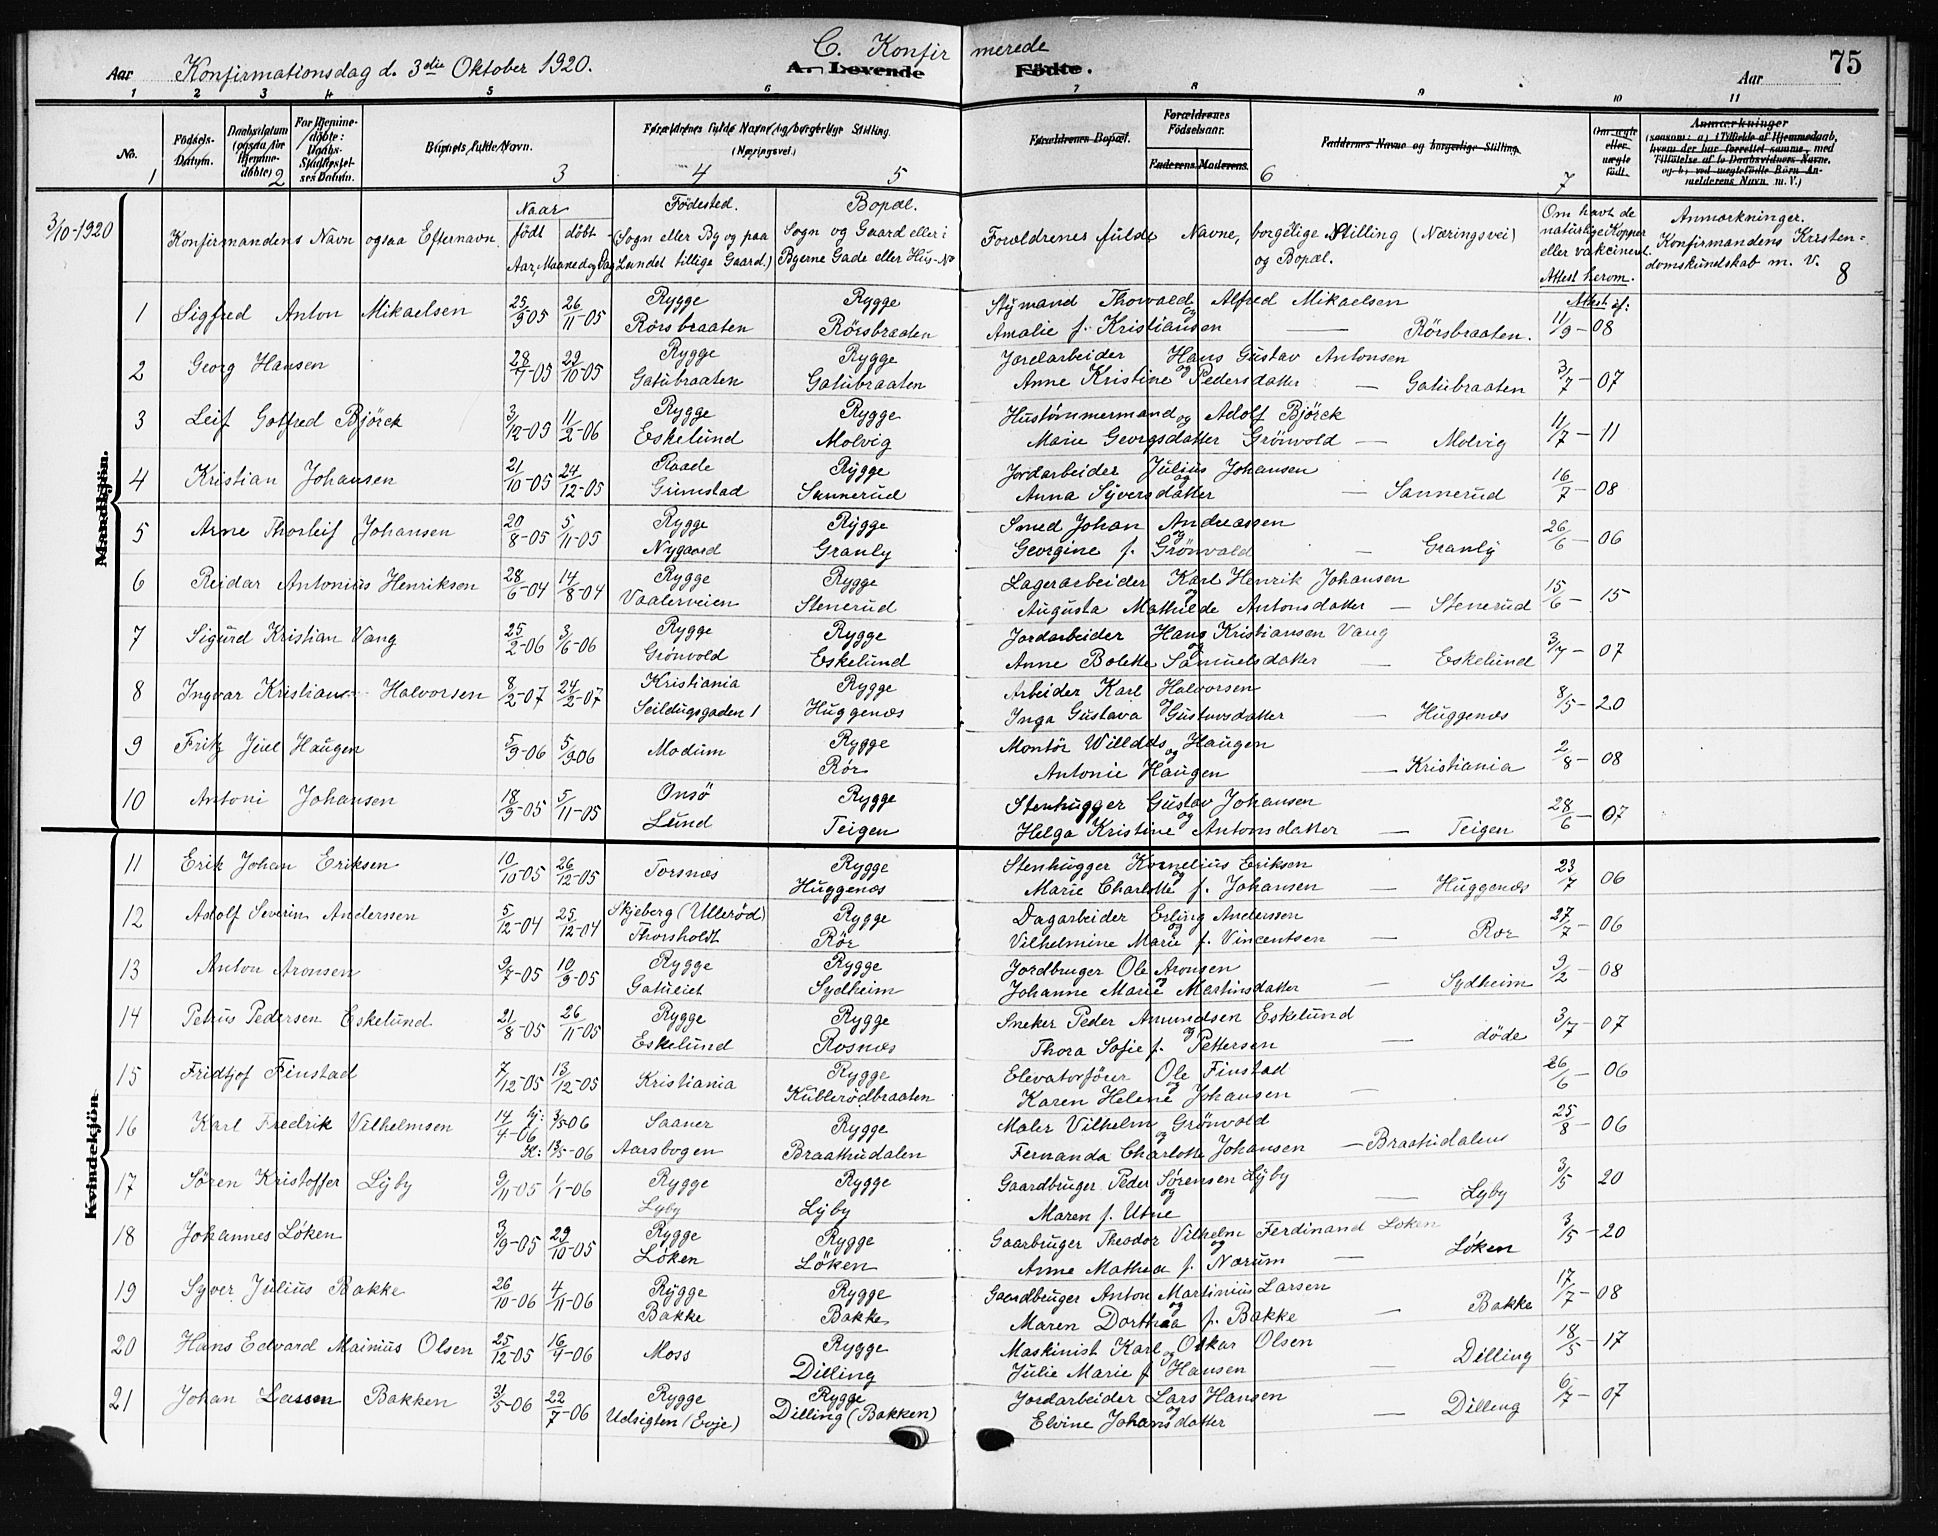 C. Konfirmerede
75
Aar Konfirmationsdag d. 3die Oktober 1920. A. Levende Födte. Aar
1 2 3 4 5 6 7 8 9 10 11
No. Födsels-Datum. Daabsdatum (ogsaa for Hjemmedöbte) For Hjemmedöbte: Daabs-Stadfæstelses Datum. Barnets fulde Navn. Forældrenes fulde Navne og borgerlige Stilling. (Næringsvei.) Forældrenes Bopæl. Forældrenes Födselsaar. Faderens. Moderens. Faddernes Navne og borgerlige Stilling. Om ægte eller uægte födt. Anmærkninger (saasom: a) i Tilfælde af Hjemmedaab, hvem der har forrettet samme, med Tilföielse af to Daabsvidners Navne, og b) ved uægtefödte Börn Anmelderens Navn m. V.)
1 2 3 4 5 6 7
3/10-1920 Konfirmandens Navn ogsaa Efternavn Naar født døbt Aar, Maaned og Dag Fødested. (Sogn eller By og paa Landet tillige Gaard.) Bopæl. Sogn og Gaard eller i Byerne Gade eller Hus-No Foreldrenes fulde Navne, borgelige Stilling (Næringsvei) og Bopæl. Om havt de naturlige Kopper eller vakcineret. Attest herom. Anmærkninger. Konfirmandens Kristendomskundskab m. V. 8
Attest af:
1 Sigfred Anton Mikaelsen 25/9-05 26/11-05 Rygge Rörsbraaten Rygge Rörsbraaten Stymand Thorvald Alfred Mikaelsen og Amalie f. Kristiansen — Rörsbraaten. 11/9-08
2 Georg Hansen 28/7-05 29/10-05 Rygge Gatubraaten Rygge Gatubraaten Jordarbeider Hans Gustav Antonsen og Anne Kristine Pedersdatter — Gatubraaten 3/7-07
3 Leif Gotfred Bjórck 3/12-05 11/2-06 Rygge Eskelund Rygge Molvig Hustømmermand og Adolf Bjórck Marie Georgsdatter Grönvold — Molvig 11/7-11
4 Kristian Johansen 21/10-05 24/12-05 Raade Grimstad Rygge Sannerud Jordarbeider Julius Johansen og Anna Syversdatter — Sannerud 16/7-08
5 Arne Thorleif Johansen 20/8-05 5/11-05 Rygge Nygaard Rygge Granly Smed Johan Andreassen og Georgine f. Grönvald — Granly 26/6-06
6 Reidar Antonius Henriksen 28/6-04 14/8-04 Rygge Vaalerveien Rygge Stenerud Lagerarbeider Karl Henrik Johansen og Augusta Mathilde Antonsdatter — Stenerud 15/6-15
7 Sigurd Kristian Vang 25/2-06 3/6-06 Rygge Grönvold Rygge Eskelund Jordarbeider Hans Kristiansen Vang og Anne Bolette Samuelsdatter — Eskelund 3/7-07
8 Ingvar Kristian Halvorsen 8/2-07 24/2-07 Kristiania Seildugsgaden 1 Rygge Huggenæs Arbeider Karl Halvorsen og Inga Gustava Gustavsdatter — Huggenæs 8/5-20
9 Fritz Juel Haugen 5/9-06 5/906 Modum Rygge Rör Montör Willdds og Haugen Antonie Haugen — Kristiania 2/8-08
10 Antoni Johansen 18/9-05 5/11-05 Onsö Lund Rygge Teigen Stenhugger Gustav Johansen og Helga Kristine Antonsdatter — Teigen 28/6-07
11 Erik Johan Eriksen 10/10-05 26/12-05 Torsnæs Rygge Huggenæs Stenhugger Kornelius Eriksen og Marie Charlotte f. Johansen — Huggenæs 23/7 06
12 Adolf Severin Anderssen 5/12-04 25/12-04 Skjeberg (Ullerød) Thorsholdt Rygge Rör Dagarbeider Erling Anderssen og Vilhelmine Marie f. Vincentsen — Rør 27/7-06
13 Anton Aronsen 9/7-05 10/9-05 Rygge Gatuleiet Rygge Sydheim Jordbruger Ole Aronsen og Johanne Marie Martinsdatter — Sydheim 9/2-08
14 Petrus Pedersen Eskelund 21/8-05 26/11-05 Rygge Eskelund Rygge Rosnæs Sneker Peder Amundsen Eskelund og Thora Sofie f. Pettersen — døde 3/7-07
15 Fridtjof Finstad 7/12-05 13/12-05 Kristiania Rygge Kublerödbraaten Elevatorfører Ole Finstad og Karen Helene Johansen — 26/6-06
16 Karl Fredrik Vilhelmsen 14/4-06 hj: 3/5-06 K: 13/5-06 Saaner Aarsbogen Rygge Braatudalen Maler Vilhelm Grönvold og Fernanda Charlotte Johansen — Braatudalen 25/8-06
17 Søren Kristoffer Lyby 9/11-05 1/1-06 Rygge Lyby Rygge Lyby Gaardbruger Peder Sørensen Lyby og Maren f. Utne — Lyby 3/5 20
18 Johannes Løken 3/9-05 29/10-05 Rygge Løken Rygge Løken Gaarbruger Theodor Vilhelm Ferdinand Loken og Anne Mathea f. Narum — Løken 3/5-20
19 Syver Julius Bakke 26/10-06 4/11-06 Rygge Bakke Rygge Bakke Gaardbruger Anton Martinius Larsen og Maren Dorthea f. Bakke — Bakke 17/7-08
20 Hans Edvard Mainius Olsen 25/12-05 16/4-06 Moss Rygge Dilling Maskinist Karl Oskar Olsen og Julie Marie f Hansen — Dilling 18/5-17
21 Johan Larsen Bakken 31/5-06 22/7-06 Rygge Udsigten (Evje) Rygge Dilling (Bakken) Jordarbeider Lars Hansen og Elvine Johansdatter — Dilling 6/7-07
Mandkjön.
Kvindekjön